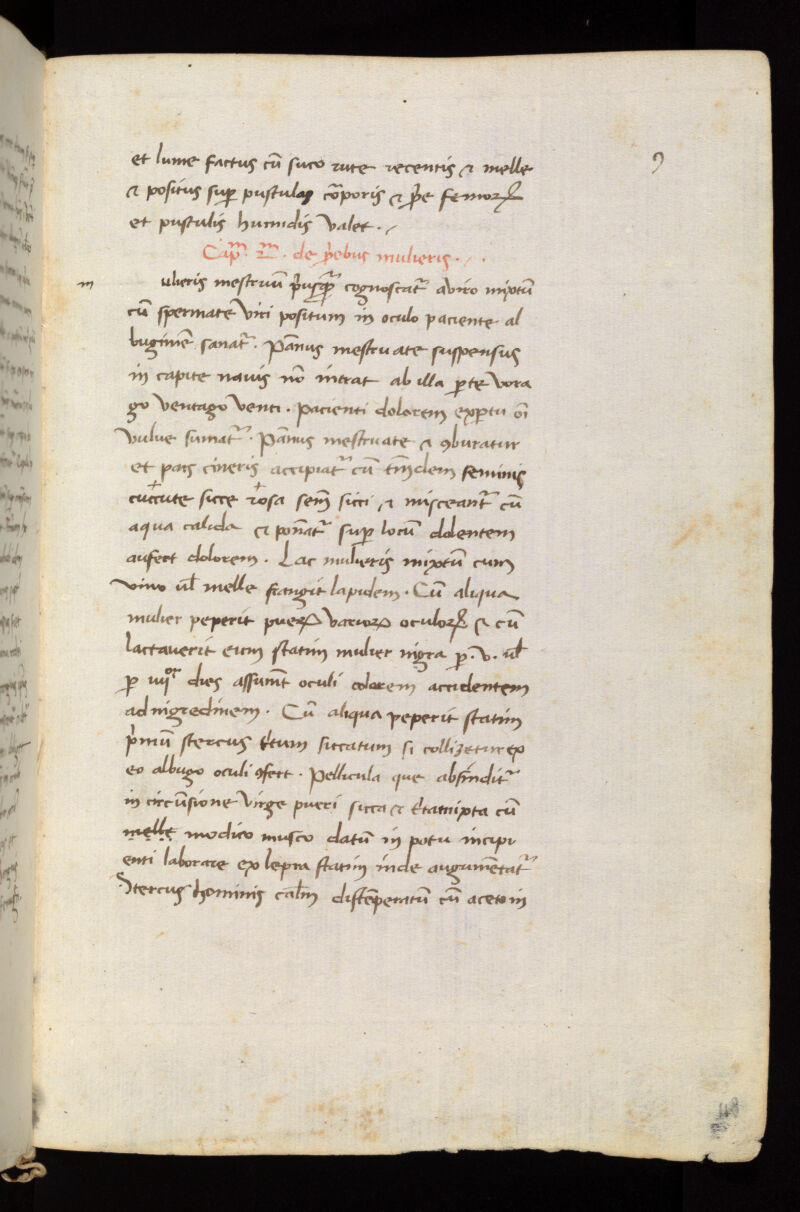 9
et lume factus cũ suco rute recentis & melle
& positus sup pustulas cõporis & p̃te femorꝝ
et pustulis humidis valet.
Capm̃. 2m̃. de p̃tibus mulieris.
m ulieris mestruũ p̃usqꝫ cognoscat᷑ a viro mixtũ
cũ spermate viri positum in oculo paciente al
buginẽ sanat᷑. Pãnus mestruate suspensus
in capite navis nõ intrat ab illa p̱te vora
go ventago venti. Pacienti dolorem
vulve sumat᷑. Pãnus mestruate & ꝯburatur
et pars cineris accipiat᷑ cũ tm̃dem seminis
cuccute sicce rosa sem̃ sicci & misceant᷑ cũ
aqua calida & ponãt᷑ sup locũ dolentem
aufert dolorem. Lac mulieris mixtũ cum
vino ul̃ melle frangit lapidem. Cũ aliqua
mulier peperit pueꝝ varioꝝ oculoꝝ & cũ
lactaverit eum statim mulier nigra p̱. v. ul̃
p̱ iiijor dies assumt oculi colorem accidentem
ad nigredinem. Cũ aliqua peperit statim
p̃mũ stercus siccatum si colligetur ex
eo albugo oculi ꝯfert. Pellicula que absĩndit᷑
in circũsione virge pueri sicca & cũ
melle modico musco datũ in potu incipi
enti laborare ex lepra statim inde augumẽtat᷑
Stercus hominis cal̃m distẽperatũ cũ aceto in